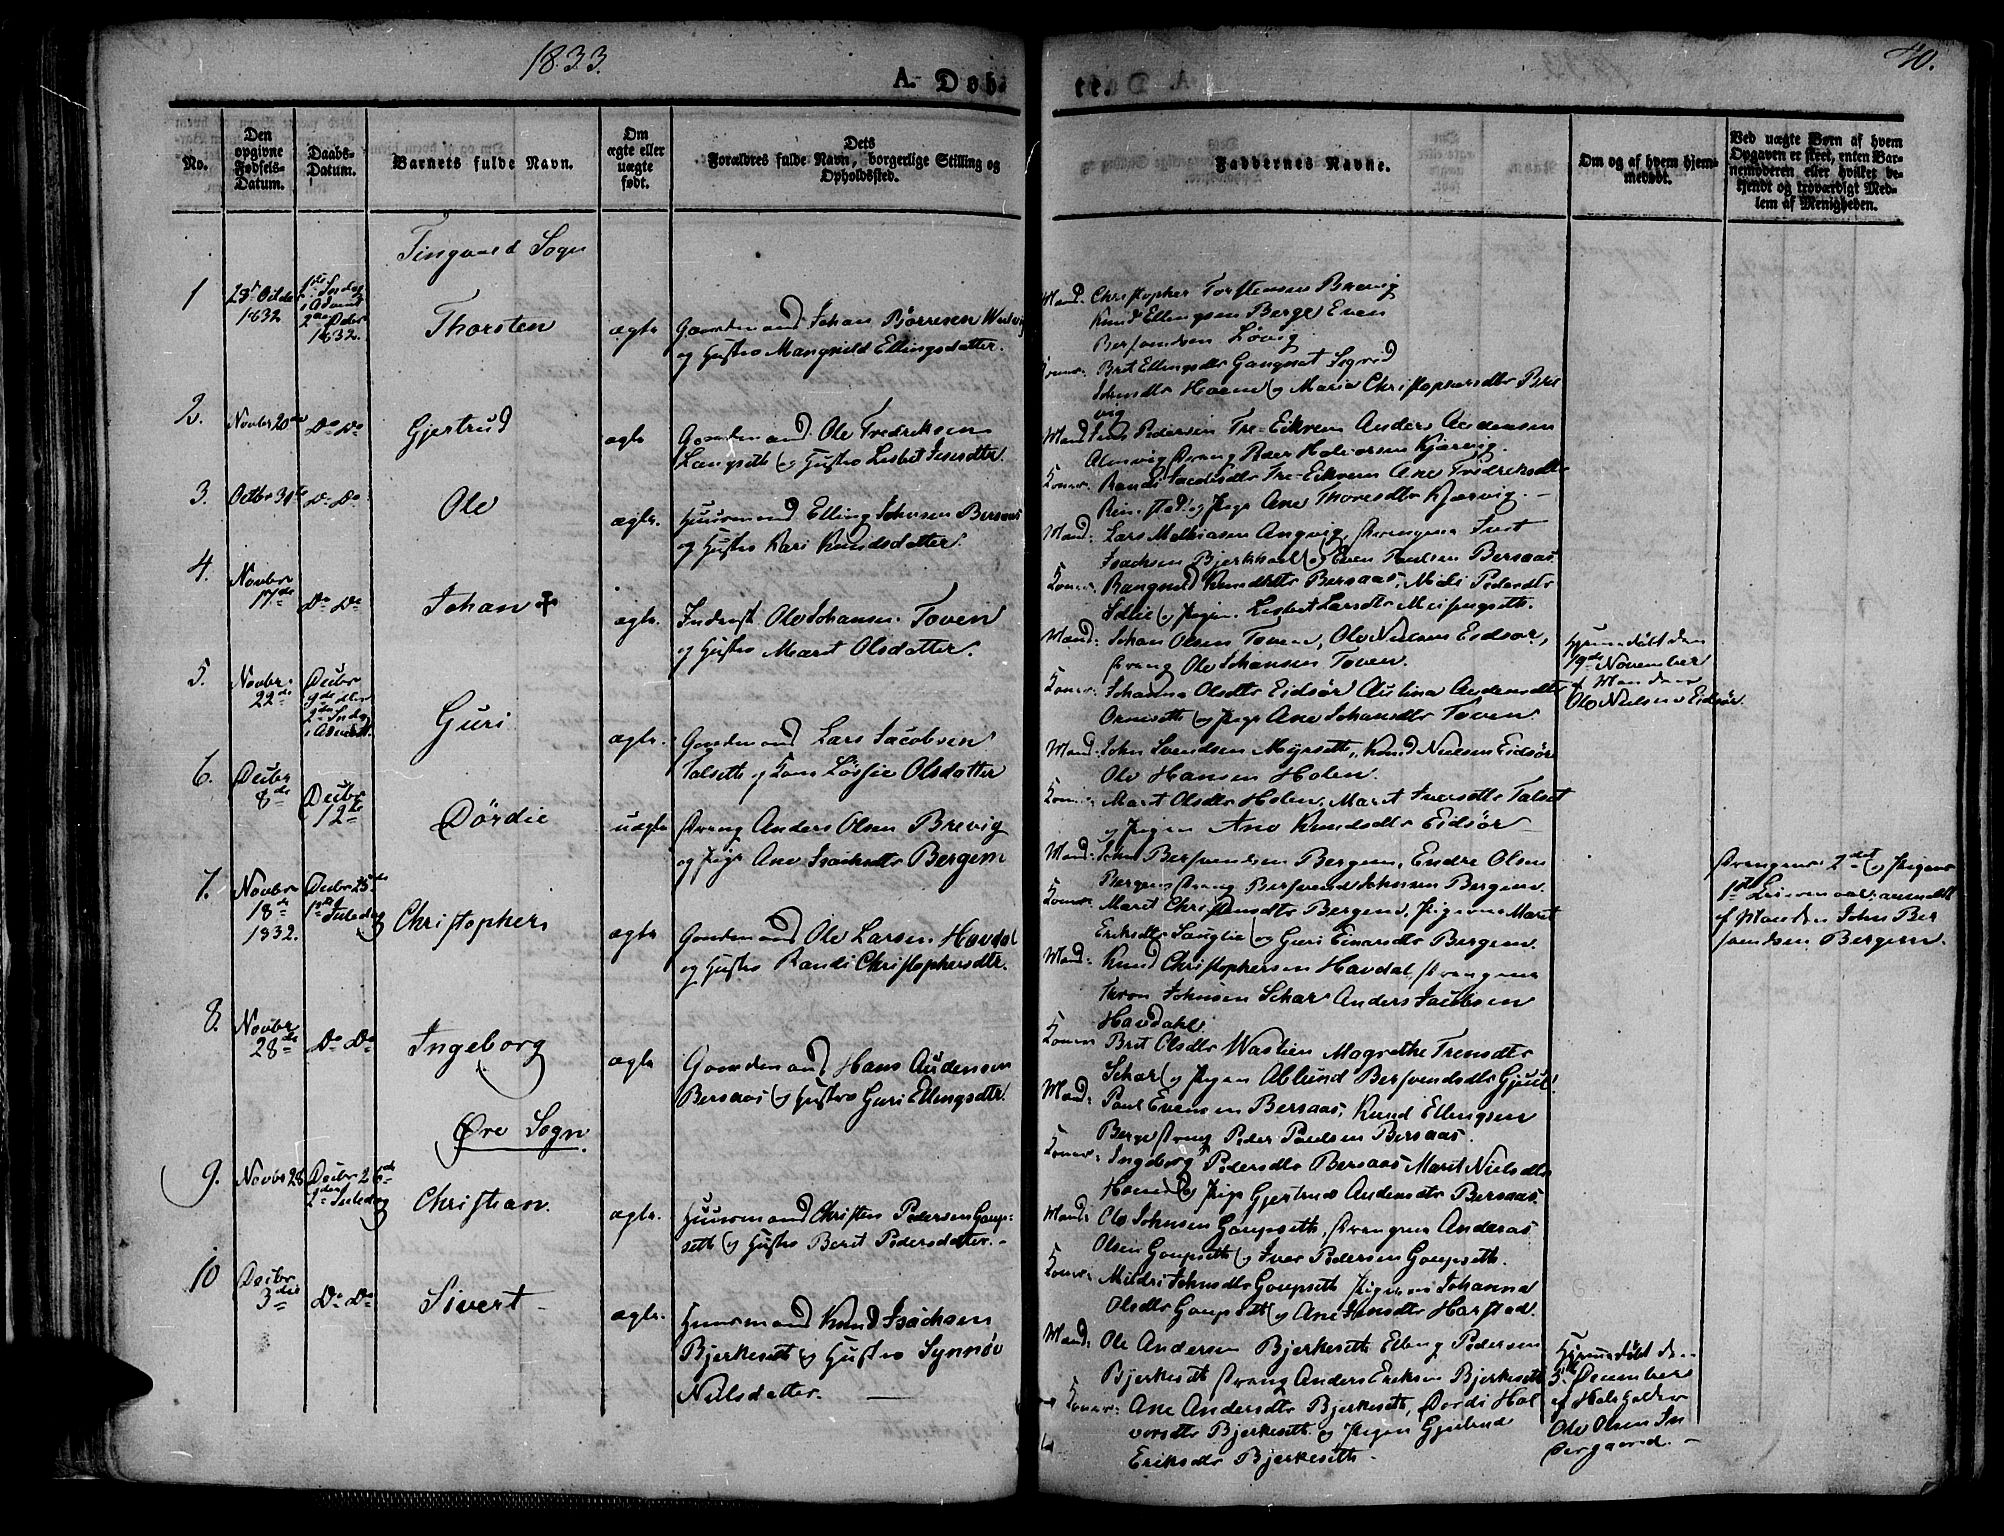 1833.
40.
A. Døbte.
No.
Den opgivne Fødsels-Datum.
Daabs-Datum.
Barnets fulde Navn.
Om ægte eller uægte født.
Dets Forældres fulde Navn, borgerlige Stilling og Opholdssted.
Faddernes Navne.
Om og af hvem hjem-medøbt.
Ved uægte Børn af hvem Opgaven er skeet, enten Bar-nemoderen eller hvilket be-kjendt og troværdigt Med-lem af Menigheden.
Tingvold Sogn
1
1832
1832.
Thorsten
ægte
Gaardmand Johan Børresen
og Hustro Mangnild Ellingsdatter.
Mænd: Christopher Torstensen Brevig
Knud Ellingsen Berge Even
Bersvendsen Løvig
Konr: Brit Ellingsdtr Gangnat Sigrid
Johnsdtr Hoem og Marie Christophersdtr Bre
vig
2.
Novbr 20de
Do Do
Gjertrud
ægte
Gaardmand Ole Fredriksen
Langseth og Hustro Lisbet Iversdtr.
Mænd Jens Pedersen Tre-Eikrem Anders Andersen
Almvig Dreng Peder Halvorsen Kjørvig.
Konr: Randi Jacobsdtr Tre-Eikrem Ane Fredriksdtr
Rimstad og Pige Ane Thoresdtr Kjørvig. -
3.
Octbr 31te
Do Do
Ole
ægte.
Huusmand Elling Johnsen Bersaas
og Hustro Kari Knudsdatter.
Mænd: Lars Mathiasen Angvig, Drengene Ivert
Isachsen Bjerkhoel og Even Poulsen Bersaas
Konr: Rangnild Knudsdtr Bersaas, Mali Pedersdtr
Sælie og Pigen Lisbet Larsdtr Meisingseth.
4.
Novbr
17de
Do Do
Johan +
ægte.
Inderst Ole Johansen Toven
og Hustro Marit Olsdatter.
Mænd: Johan Olsen Toven, Ole Nielsen Eidsør,
Dreng Ole Johansen Toven.
Konr: Johanna Olsdtr Eidsør Autina Andersdtr
Ormseth og Pige Ane Johansdtr Toven
Hjemmedøbt den
19de November
af Manden
Ole Nielsen Eidsør.
5.
Novbr.
22de
Decbr
9de den
2den Sndg
i Advent.
Guri
ægte.
Gaardmand Lars Jacobsen
Talseth og Kone Løssie Olsdatter
Mænd: John Svendsen Myrseth, Knud Nielsen Eidsør
Ole Hansen Holen.
Konr: Marit Olsdtr Holen, Marit Iversdtr Talset
og Pigen Ane Knudsdtr Eidsør
6.
Decbr
8de
Decbr
12te
Dørdie
uægte
Dreng Anders Olsen Brevig
og Pige Ane Isachsdtr Bergem
Mænd: John Bersvendsen Bergem, Endre Olsen
Bergem Dreng Bersvend Johnsen Bergem.
Konr: Marit Christensdtr Bergem, Pigerne Marit
Eriksdtr Sanglie og Guri Einarsdtr Bergem.
Drengens 2det og Pigens
1ste Leiermaal: anmeldt
af Manden John Ber
svendsen Bergem.
7.
Novbr
18de
1832.
Decbr 25de
1ste Juledag
Christopher
ægte
Gaardmand Ole Larsen Havdal
og Hustro Randi Christophersdtr.
Mænd: Knud Christophersen Havdal, Drengene
Tron Johnsen Schar Anders Jacobsen
Havdahl
Konr Brit Olsdtr Waslien Magrethe Tronsdtr
Schar og Pigen Ablund Bersvendsdtr Gjul.
8.
Novbr
28de
Do Do
Ingeborg
ægte
Gaardmand Hans Audensen
Bersaas og Hustro Guri Ellingsdtr.
Mænd: Paul Evensen Bersaas, Knud Ellingsen
Berge Dreng Peder Paulsen Bersaas.
Konr: Ingeborg Pedersdtr Bersaas Marit Nielsdtr
Hoem og Pige Gjertrud Andersdtr Bersaas.
Øre Sogn.
9.
Novbr 28
Decbr 26de
2den Juledag
Christian.
ægte.
Huusmand Christen Pedersen Goups-
seth og Hustro Berit Pedersdatter. -
Mænd: Ole Johnsen Goupseth, Drengene Anderas
Olsen Goupseth og Iver Pedersen Goupseth.
Konr: Mildri Johnsdtr Goupseth Pigerne Johanna
Olsdtr Goupseth og Ane Jonsdtr Harstad.
10
Decbr
3die
Do Do
Sivert -
ægte.
Huusmand Knud Isachsen
Bjerkeseth og Hustro Synnøv
Nielsdatter. -
Mænd: Ole Andersen Bjerkeseth Elling Pedersen
Bjerkeseth Dreng Anders Eriksen Bjerkeseth
Konr: Ane Andersdtr Bjerkeseth, Dordi Hal
vorsdtr Bjerkeseth og Pigen Gjertrud
Eriksdtr Bjerkeseth.
Hjemmedøbt den
5te December
af Kirkesanger
Ole Olsen In
dergaard. -